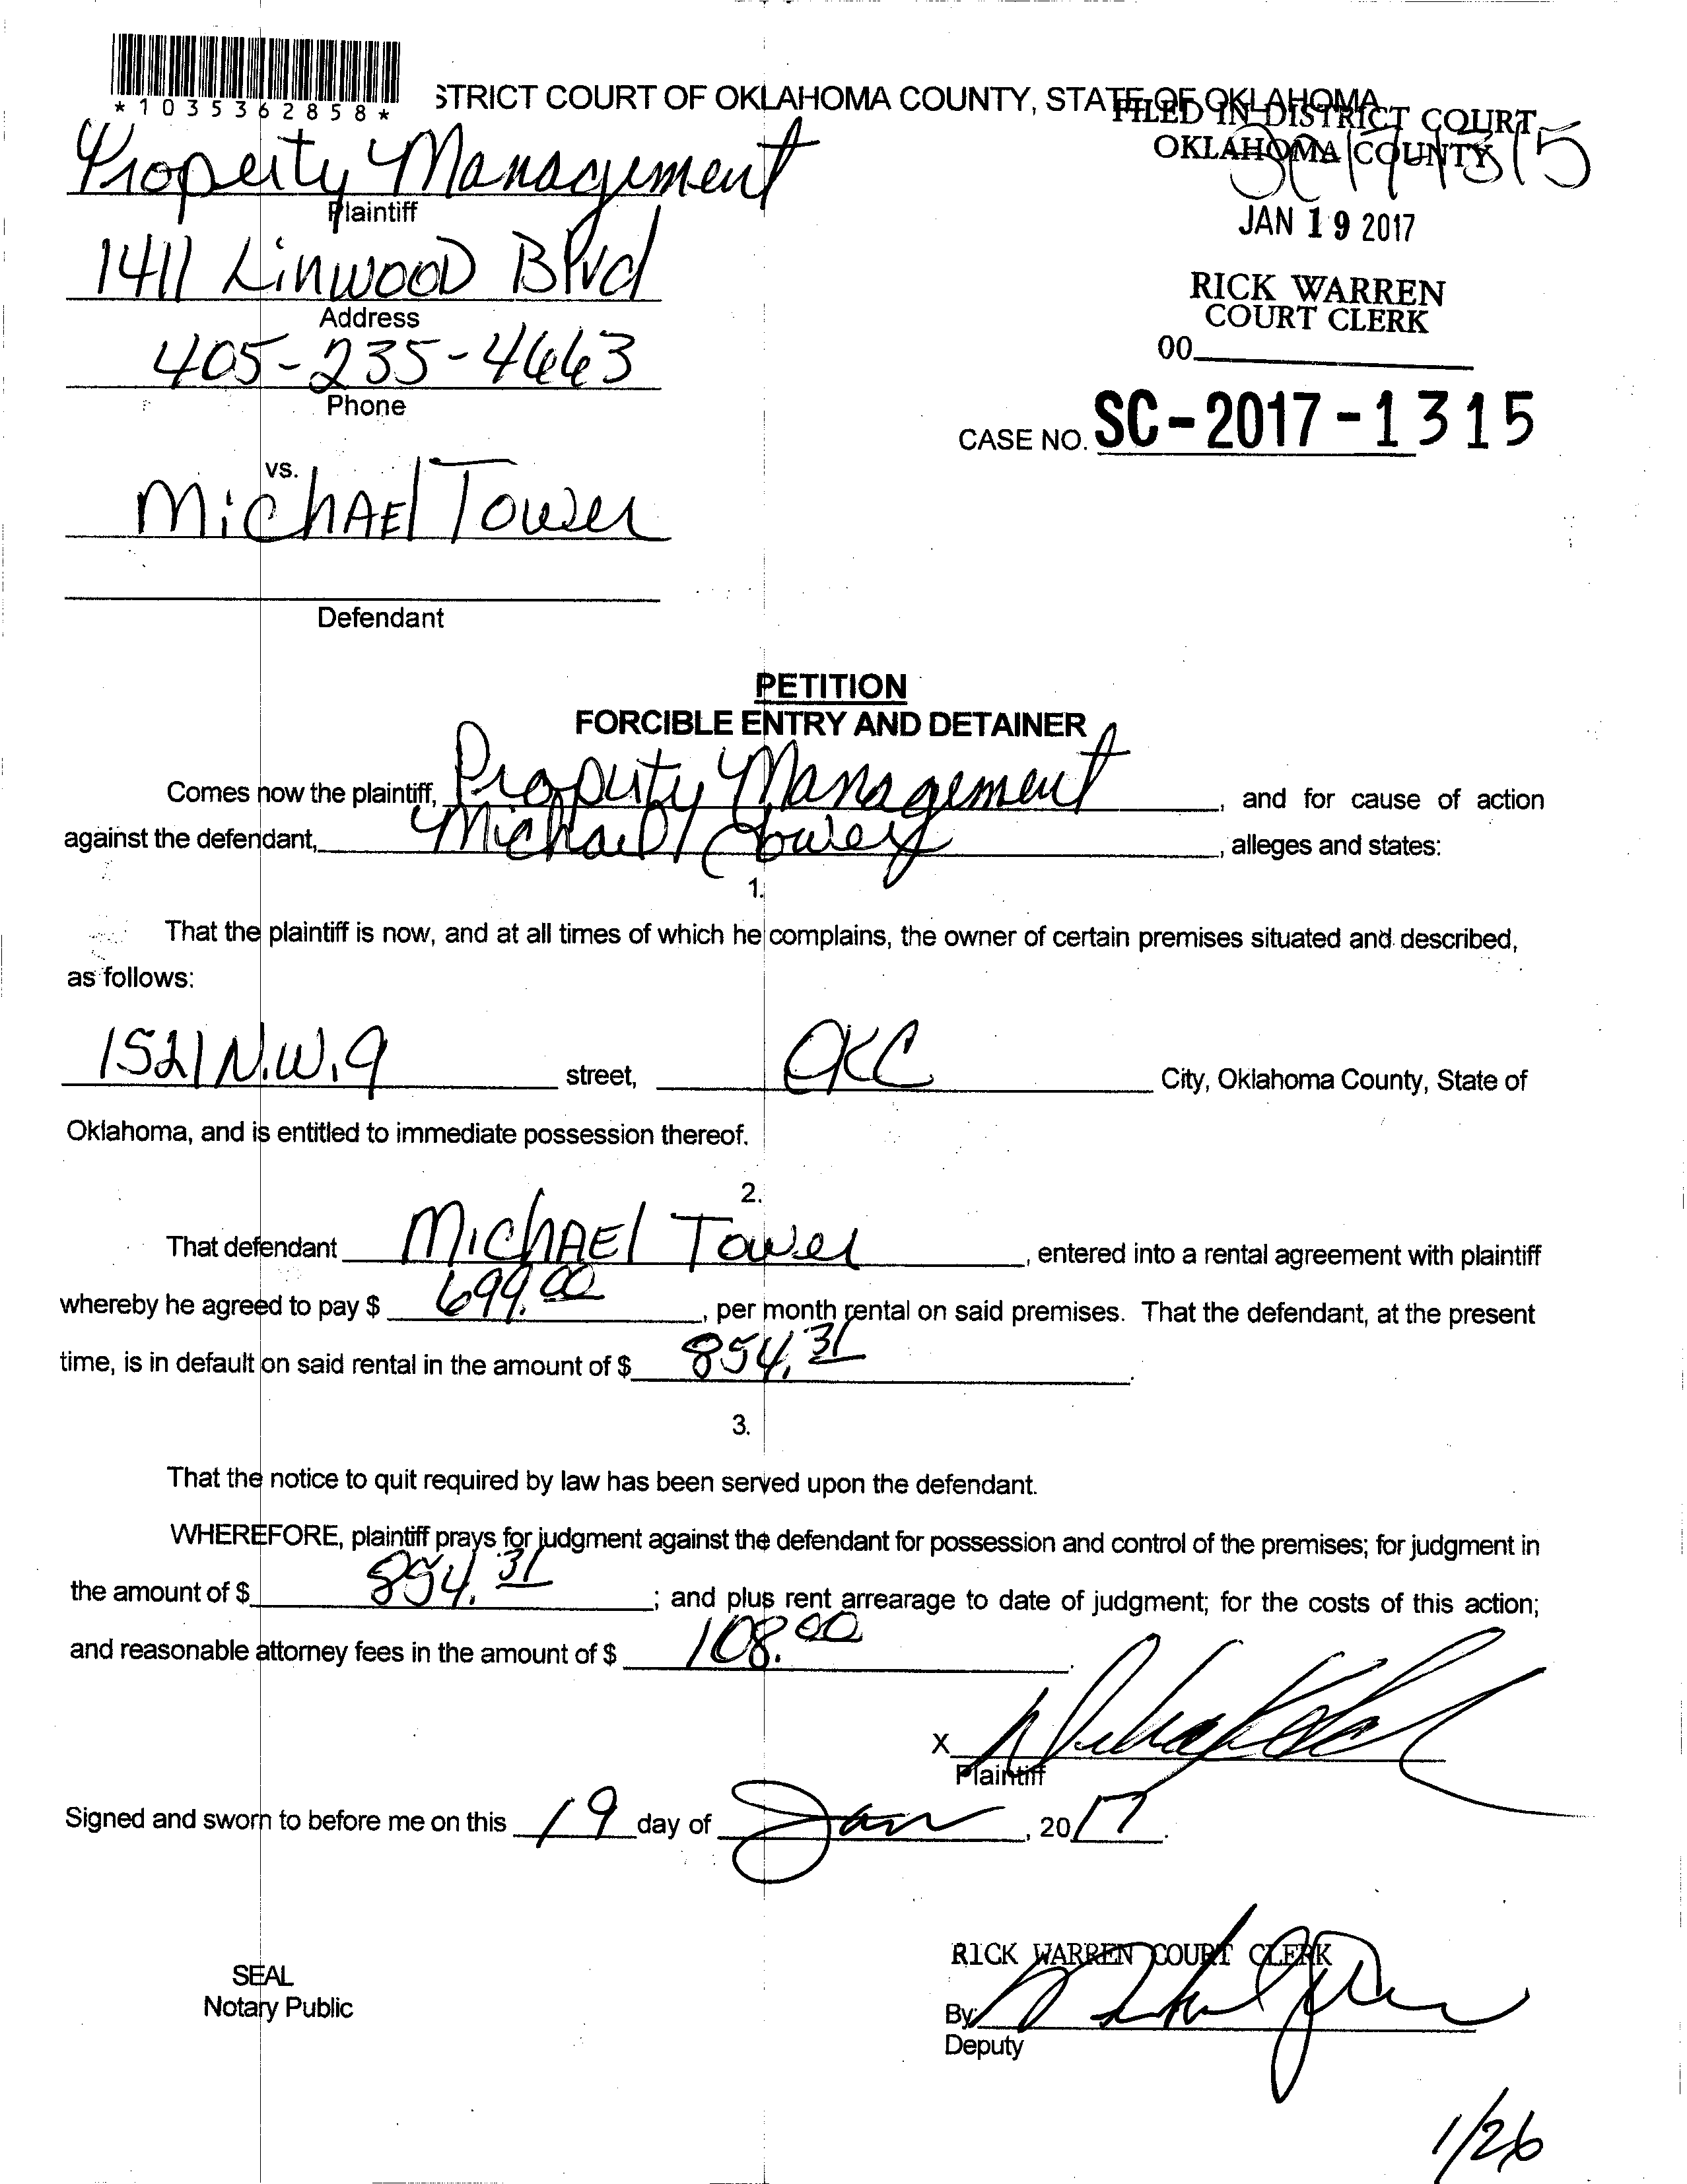 *1035362858*
STRICT COURT OF OKLAHOMA COUNTY, STATE OF OKLAHOMA
FILED IN DISTRICT COURT
OKLAHOMA COUNTY
Property Management
Plaintiff
JAN 19 2017
1411 Linwood Blvd
Address
RICK WARREN
COURT CLERK
405-235-4663
Phone
00
CASE NO. SC-2017-1315
vs.
Michael Tower
Defendant
PETITION
FORCIBLE ENTRY AND DETAINER
Comes now the plaintiff, Property Management, and for cause of action
against the defendant, Michael Tower, alleges and states:
1.
That the plaintiff is now, and at all times of which he complains, the owner of certain premises situated and described,
as follows:
1521 N.W. 9 street, OKC City, Oklahoma County, State of
Oklahoma, and is entitled to immediate possession thereof.
2.
That defendant Michael Tower, entered into a rental agreement with plaintiff
whereby he agreed to pay $ 699.00, per month rental on said premises. That the defendant, at the present
time, is in default on said rental in the amount of $ 854.31.
3.
That the notice to quit required by law has been served upon the defendant.
WHEREFORE, plaintiff prays for judgment against the defendant for possession and control of the premises; for judgment in
the amount of $ 854.31; and plus rent arrearage to date of judgment; for the costs of this action;
and reasonable attorney fees in the amount of $ 108.00.
X
Plaintiff
Signed and sworn to before me on this 19 day of Jan, 2017.
RICK WARREN COURT CLERK
SEAL
Notary Public
By:
Deputy
1/26